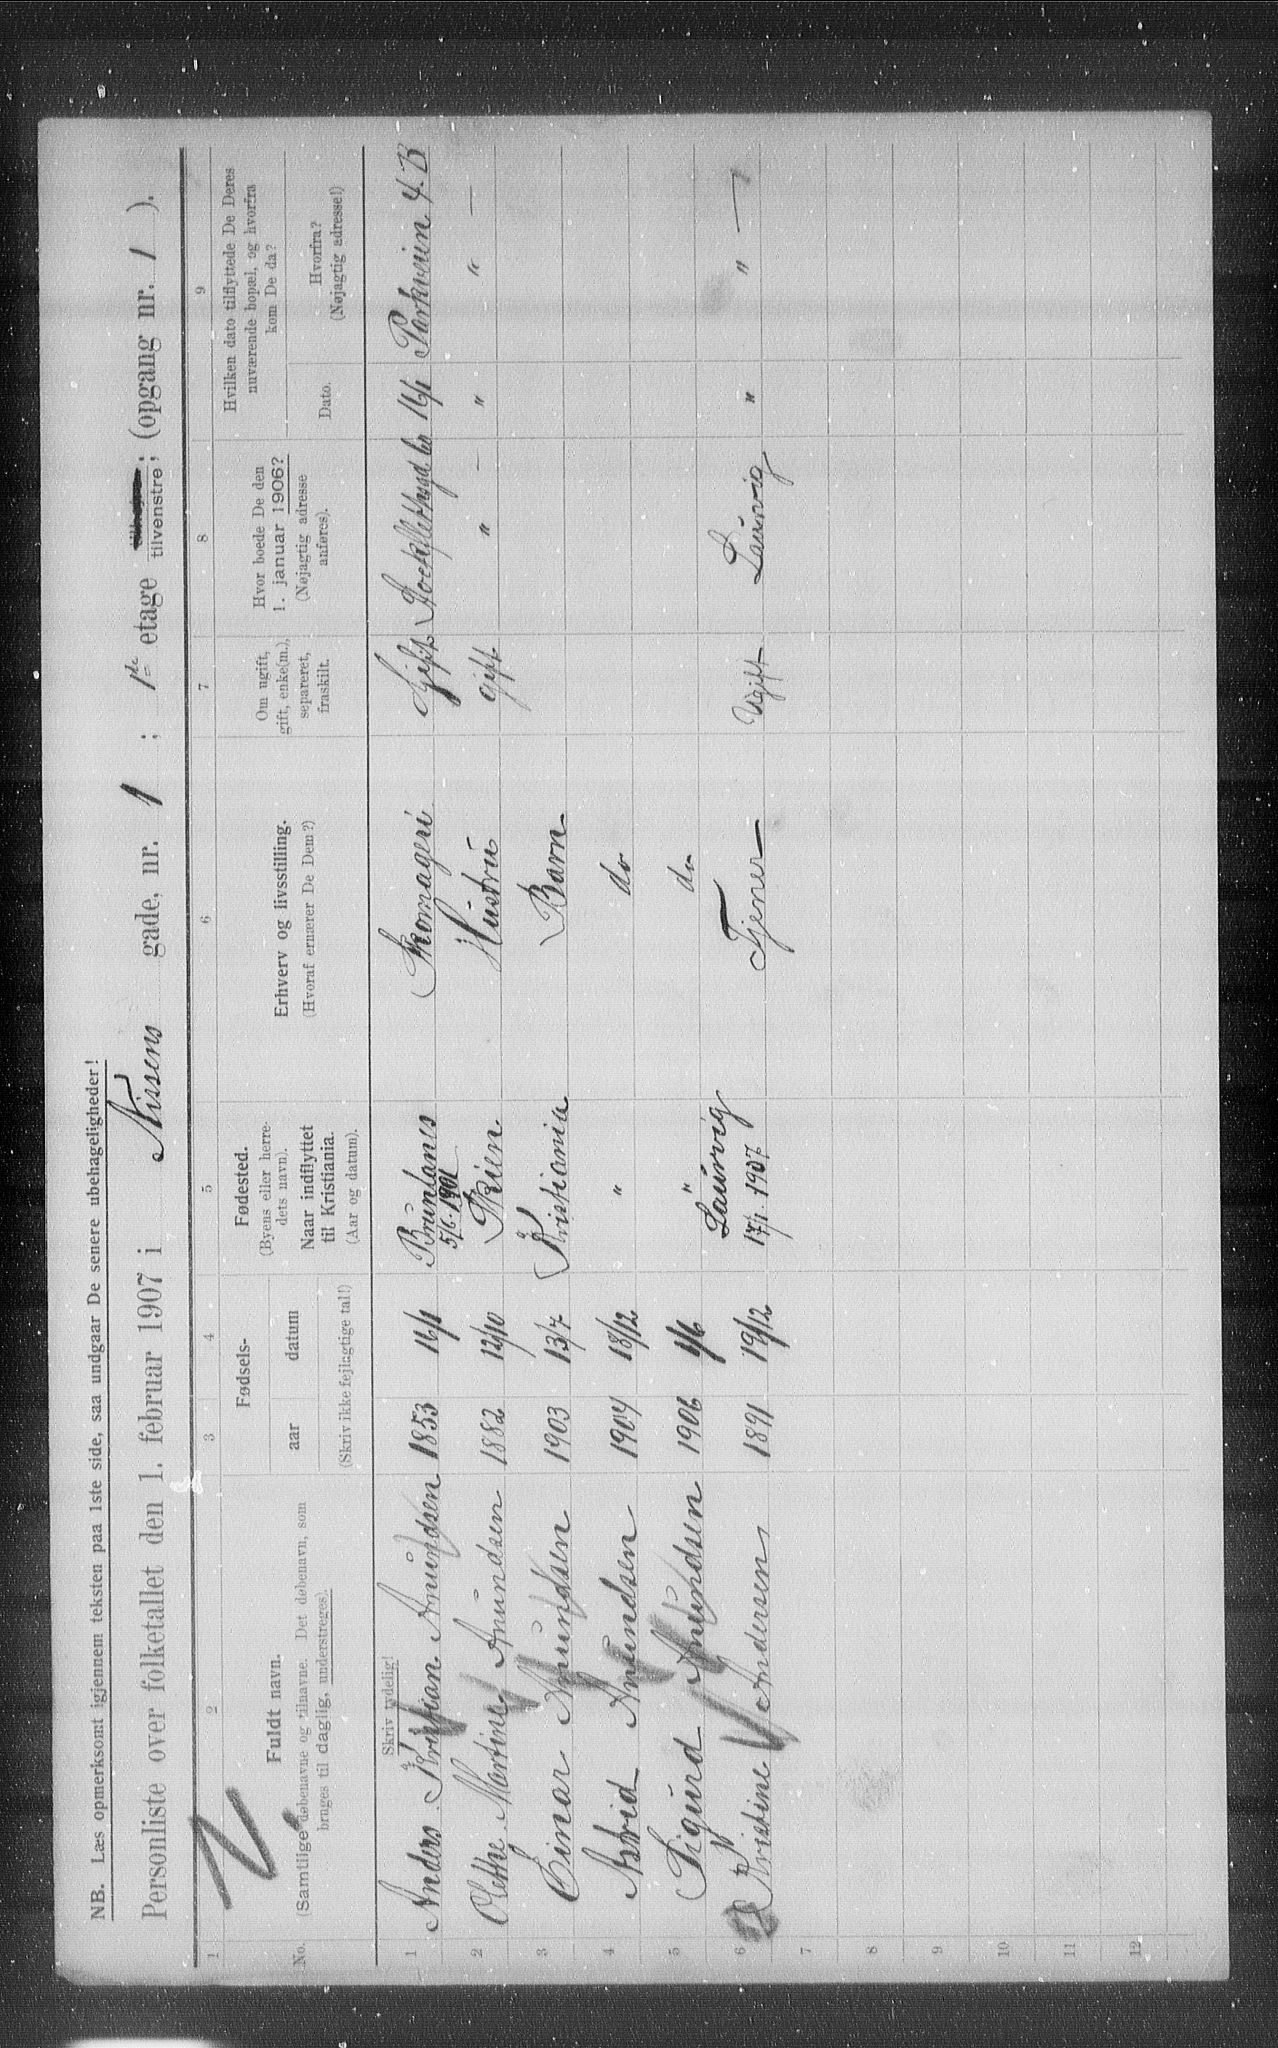 NB. Læs opmerksomt igjennem teksten paa 1ste side, saa undgaar De senere ubehageligheder!
Personliste over folketallet den 1. februar 1907 i Nissens gade, nr. 1 ; 1ste etage tilvenstre; (opgang nr. 1 ).
1 2 3 4 5 6 7 8 9
No.
Fuldt navn.
(Samtlige døbenavne og tilnavne. Det døbenavn, som
bruges til daglig, understreges).
Skriv tydelig!
Fødsels-
aar datum
(Skriv ikke fejlagtige tal!)
Fødested.
(Byens eller herre-
dets navn).
Naar indflyttet
til Kristiania.
(Aar og datum).
Erhverv og livsstilling.
(Hvoraf ernærer De Dem?)
Om ugift,
gift, enke(m.),
separeret,
fraskilt.
Hvor boede De den
1. januar 1906?
(Nøjagtig adresse
anføres).
Hvilken dato tilflyttede De Deres
nuværende bopæl, og hvorfra
kom De da?
Dato.
Hvorfra?
(Nøjagtig adresse!)
1 Anders Kristian Amundsen 1853 16/1 Brunlanes 5/6 1901 Skomageri Gift 16/1 Parkveien 4. B
2 Olethe Martine Amundsen 1882 12/10 Skien Hustru gift " – " " —
3 Einar Amundsen 1903 13/7 Kristiania Barn
4 Astrid Amundsen 1904 18/12 " do
5 Sigurd Amundsen 1906 1/6 " do
6 Kristine Andersen 1891 19/12 Laurvig 17/1. 1907 Tjener Ugift Laurvig " " —
7
8
9
10
11
12